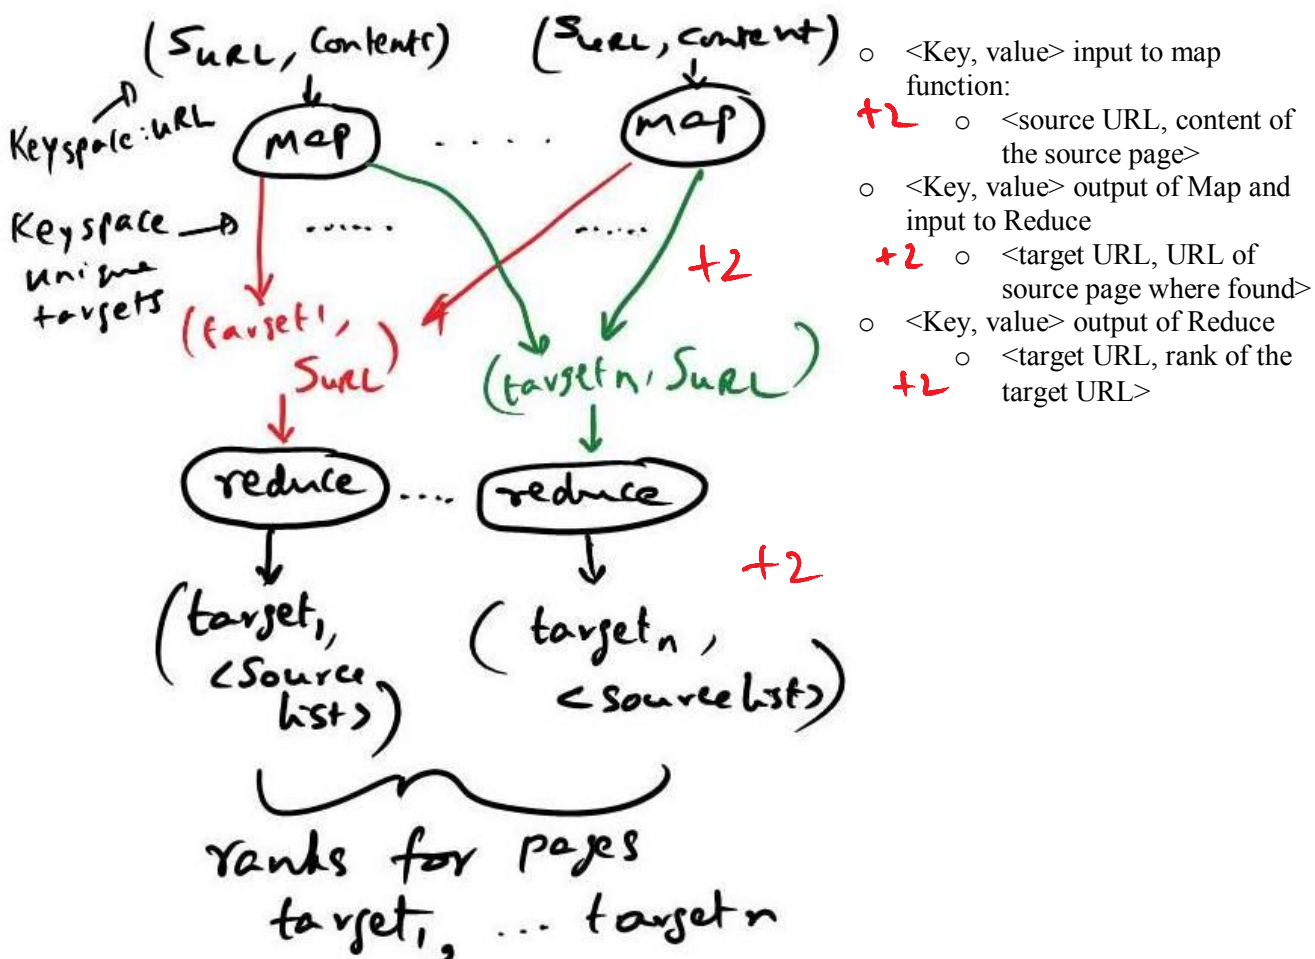 (SURL, Contents)
(SURL, content)
Keyspace: URL
map
. . . .
map
Keyspace
unique
targets
......
......
+2
(target1,
SURL)
(targetn, SURL)
reduce
....
reduce
+2
(target1,
<Source
list>)
(targetn,
<source list>)
ranks for pages
target1, ... targetn
o <Key, value> input to map
function:
+2 o <source URL, content of
the source page>
o <Key, value> output of Map and
input to Reduce
+2 o <target URL, URL of
source page where found>
o <Key, value> output of Reduce
o <target URL, rank of the
+2 target URL>